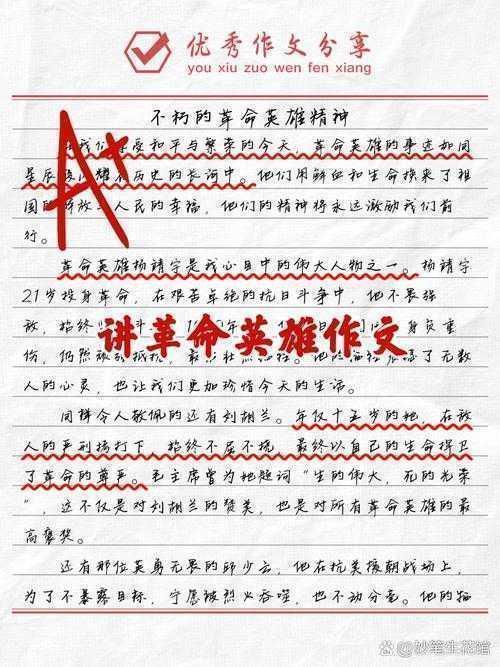 优秀作文分享
you xiu zuo wen fen xiang
不朽的革命英雄精神
A+
我们 受和平与繁荣的今天，革命英雄的事迹如同
星辰 耀在历史的长河中。他们用鲜血和生命换来了祖
国的 放 人民的幸福，他们的精神将永远激励我们前
行。
革命英雄杨靖宇是我心目中的伟大人物之一。杨靖宇
21岁投身革命，在艰苦卓绝的抗日斗争中，他不畏强
敌，始终 斗 负重
讲革命英雄作文
伤，仍然 了无数
人的心灵，也让我们更加珍惜今天的生活。
同样令人敬佩的还有刘胡兰。年仅十五岁的她，在敌
人的严刑拷打下，始终不屈不挠，最终以自己的生命捍卫
了革命的尊严。毛主席曾为她题词“生的伟大，死的光荣
”，这不仅是对刘胡兰的赞美，也是对所有革命英雄的最
高褒奖。
还有那位英勇无畏的邱少云，他在抗美援朝战场上，
为了不暴露目标，宁愿被烈火吞噬，也不动分毫。他的牺
@妙笔生花馆